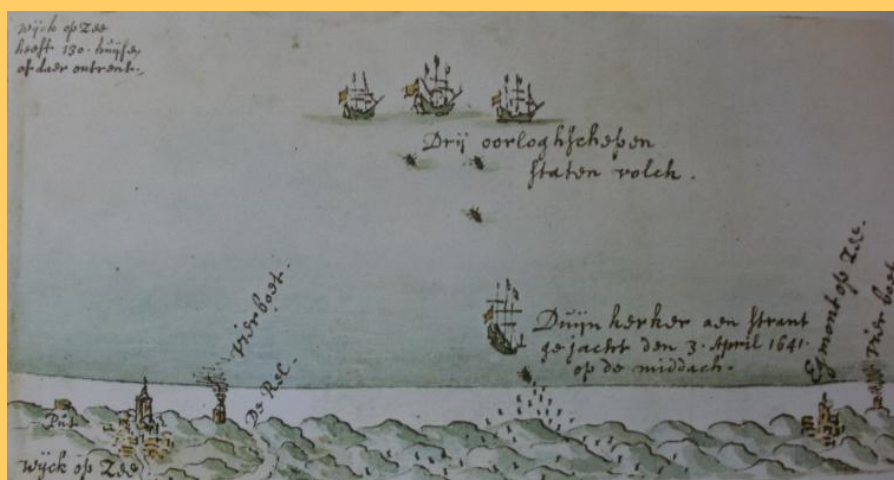 wijck op Zee
heeft 130. huijse
of daer ontrent.
Drij oorloghschepen
staten volck.
vierboet.
De Rel.
Duijn kerker aen strant
gejacht den 3. April 1641.
op de middach.
Egmont op Zee.
vier boet
Put
wijck op Zee